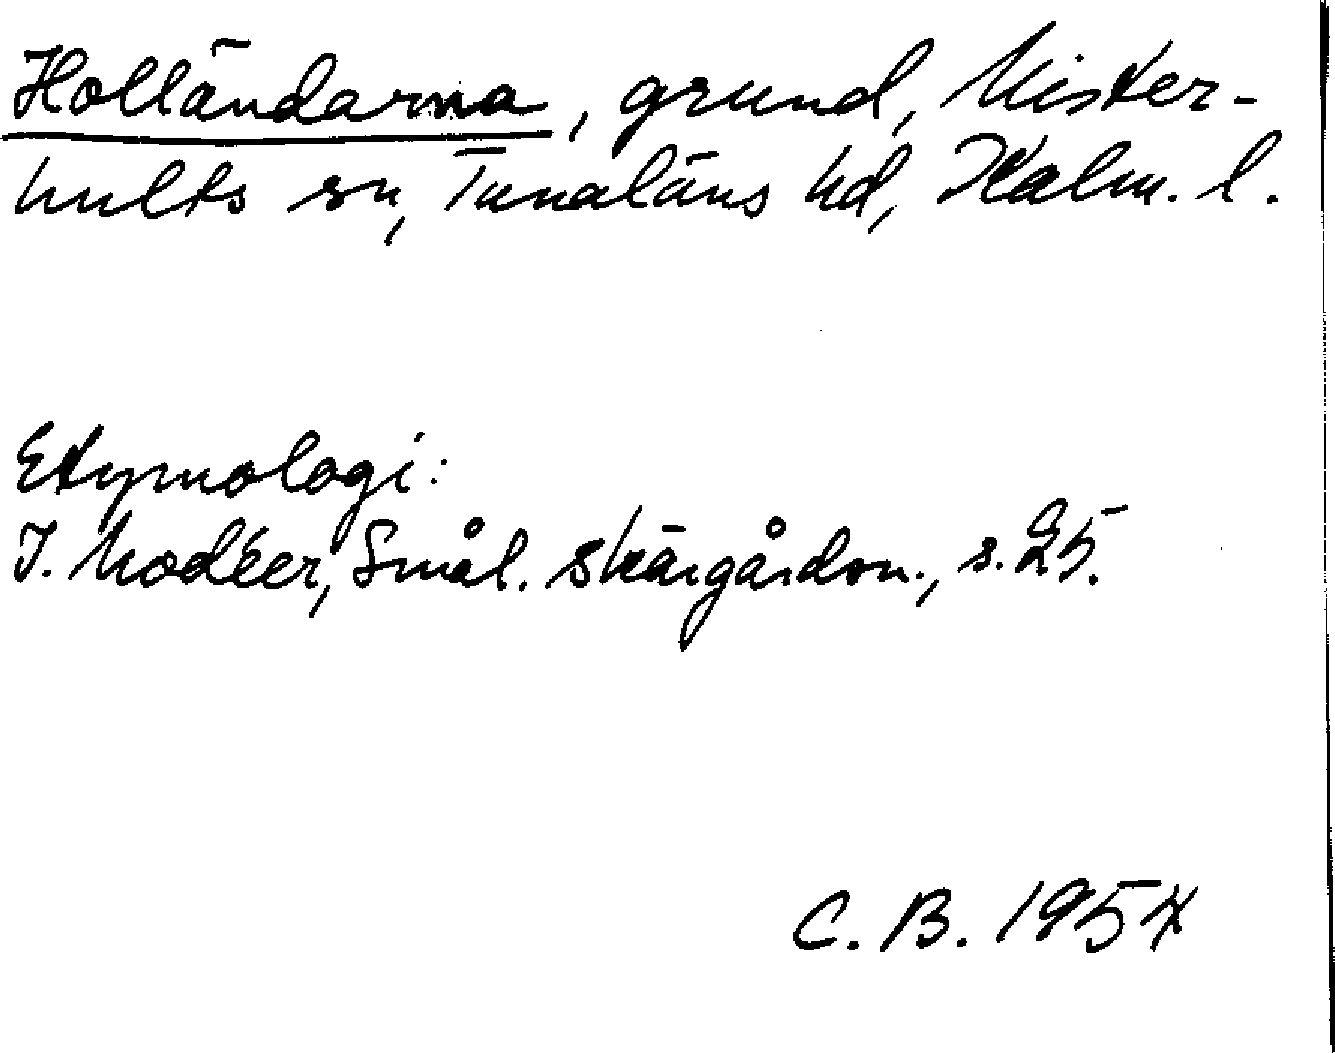 Holländarna, grund, Mister-
hults sn, Tunaläns hd, Kalm. l.
Etymologi:
I. Modéer, Smål. skärgårdsn., s. 25.
C. B. 1954